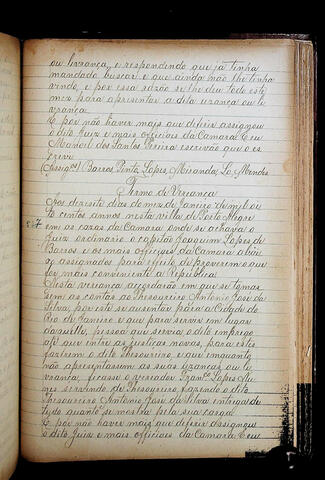 ou lvrança, e respondendo que já tinha
mandado buscar e que ainda não lhe tinha
vindo, e por essa razão se lhe deu todo este
mez para apresentar a dita uzança ou le
vrança.
E por não haver mais que deferir assignou
o dito Juiz e mais officiaes da Camara Eeu
Manoel dos Santos Pereira escrivão que o es
crevi
Barros Pinto, Lopes, Miranda, Lo, Mendes.
Termo de Vereança
Aos dezesite dias do mez de Janeiro de mil oi
to centos annos nesta villa de Porto Alegre
em as cazas da Camara onde se achava o
Juiz ordinario o capitão Joaquim Lopes de
Barros e os mais officiaes da Camara abai
xo assignados para effeito de proverem o que
for mais conveniente a Republica.
Nesta vereança acordarão em que se tomas
sem as contas ao Thesoureiro Antonio Jose da
Silva, por este se auzentar para a Cidade do
Rio de Janeiro e que para servir em lugar
daquelle, pessoa que servia o dito emprego
até que entre as justiças novas, para estes
fazerem o dito Thesoureiro e que enquanto
não apresentassem as suas uzanças ou le
vrança, ficasse o vereador Franco Lopes
nes servindo de Thesoureiro fazendo o dito
Thesoureiro Antonio Jose da Silva entrega de
tudo quanto se mostra pela sua carga
E por não haver mais que deferir assignou
o dito Juiz e mais officiaes da Camara Eeu